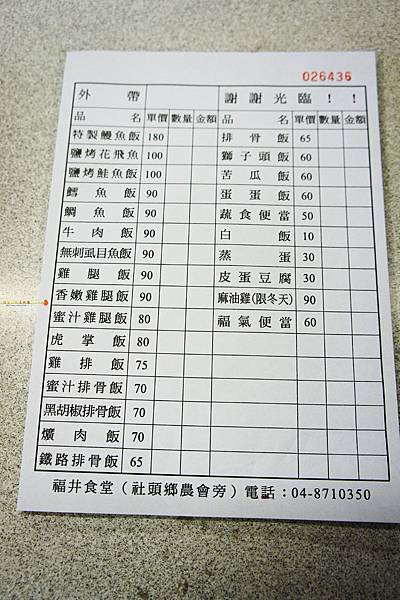 026436
外帶 謝謝光臨！！
品名 單價 數量 金額 品名 單價 數量 金額
特製鰻魚飯 180 排骨飯 65
鹽烤花飛魚 100 獅子頭飯 60
鹽烤鮭魚飯 100 苦瓜飯 60
鱈魚飯 90 蛋蛋飯 60
鯛魚飯 90 蔬食便當 50
牛肉飯 90 白飯 10
無刺虱目魚飯 90 蒸蛋 30
雞腿飯 90 皮蛋豆腐 30
香嫩雞腿飯 90 麻油雞(限冬天) 90
蜜汁雞腿飯 80 福氣便當 60
虎掌飯 80
雞排飯 75
蜜汁排骨飯 70
黑胡椒排骨飯 70
爌肉飯 70
鐵路排骨飯 65
福井食堂（社頭鄉農會旁）電話：04-8710350